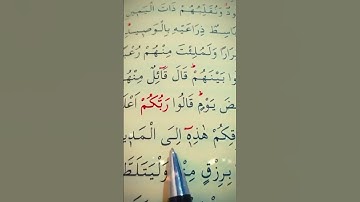 وَنُقَلِّبُهُمْ ذَاتَ الْيَمٖ
بَاسِطٌ ذِرَاعَيْهِ بِالْوَصٖيدِ
رَارًا وَلَمُلِئْتَ مِنْهُمْ رُعْ
وا بَيْنَهُمْ قَالَ قَٓائِلٌ مِنْهُمْ
ضَ يَوْمٍ قَالُوا رَبُّكُمْ اَعْلَ
قِكُمْ هٰذِهٖٓ اِلَى الْمَدٖي
بِرِزْقٍ مِنْهُ وَلْيَتَلَطَّ